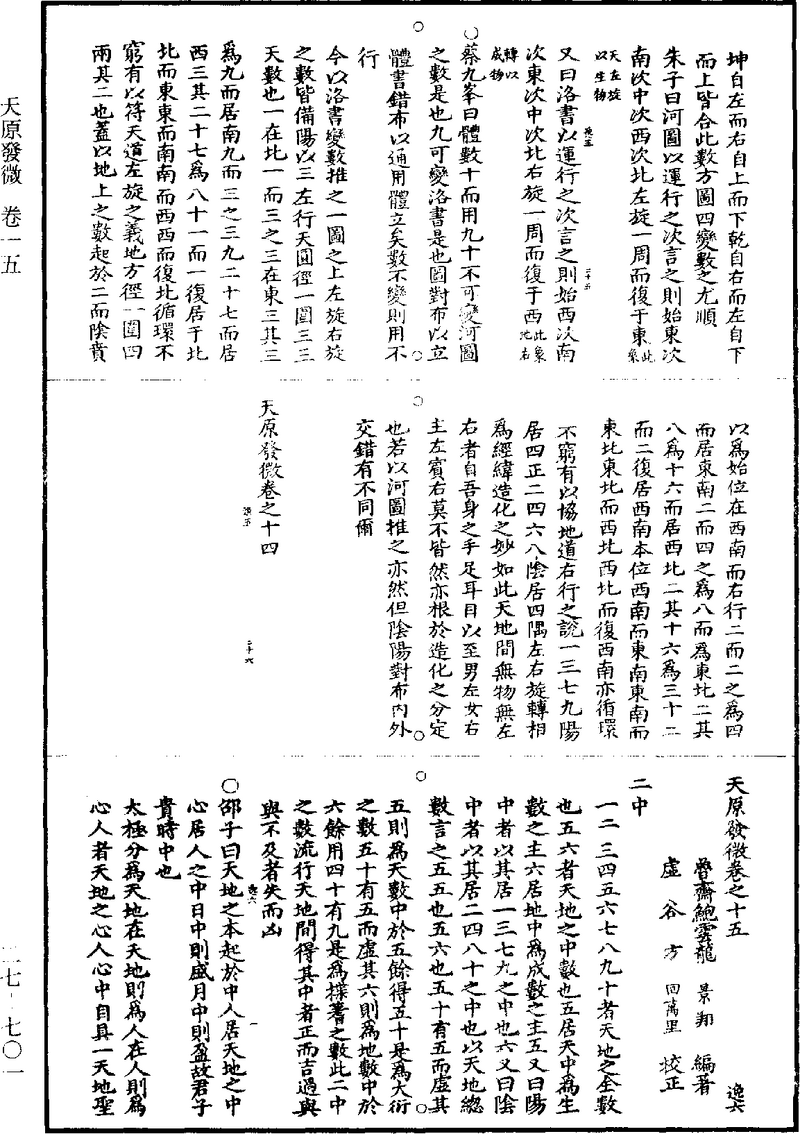 天原發微 卷一五
坤自左而右自上而下乾自右而左自下
而上皆合此數方圖四變數之尤順
朱子曰河圖以運行之次言之則始東次
南次中次西次北左旋一周而復于東此象
天左旋
以生物
又曰洛書以運行之次言之則始西次南
次東次中次北右旋一周而復于西此象地右
轉以
成物
○蔡九峯曰體數十而用九十不可變河圖
之數是也九可變洛書是也圖對布以立
體書錯布以通用體立矣數不變則用不
行
今以洛書變數推之一圖之上左旋右旋
之數皆備陽以三左行天圓徑一圍三三
天數也一在北一而三之三在東三其三
為九而居南九而三之三九二十七而居
西三其二十七為八十一而一復居于北
北而東東而南南而西西而復北循環不
窮有以符天道左旋之義地方徑一圍四
兩其二也蓋以地上之數起於二而陰賁
以為始位在西南而右行二而二之為四
而居東南二而四之為八而為東北二其
八為十六而居西北二其十六為三十二
而二復居西南本位西南而東南東南而
東北東北而西北西北而復西南亦循環
不窮有以協地道右行之說一三七九陽
居四正二四六八陰居四隅左右旋轉相
為經緯造化之妙如此天地間無物無左
右者自吾身之手足耳目以至男左女右
主左賓右莫不皆然亦根於造化之分定
也若以河圖推之亦然但陰陽對布内外
交錯有不同爾
天原發微卷之十四
二十六
天原發微卷之十五
逸六
魯齋鮑雲龍 景翔 編著
虛谷方 回萬里 校正
二中
一二三四五六七八九十者天地之全數
也五六者天地之中數也五居天中為生
數之主六居地中為成數之主五又曰陽
中者以其居一三七九之中也六又曰陰
中者以其居二四八十之中也以天地總
數言之五五也五六也五十有五而虛其
五則為天數中於五餘得五十是為大衍
之數五十有五而虛其六則為地數中於
六餘用四十有九是為揲蓍之數此二中
之數流行天地間得其中者正而吉過與
與不及者失而凶
逸六
一
○邵子曰天地之本起於中人居天地之中
心居人之中日中則盛月中則盈故君子
貴時中也
太極分為天地在天地則為人在人則為
心人者天地之心人心中自具一天地聖
二七-七〇一